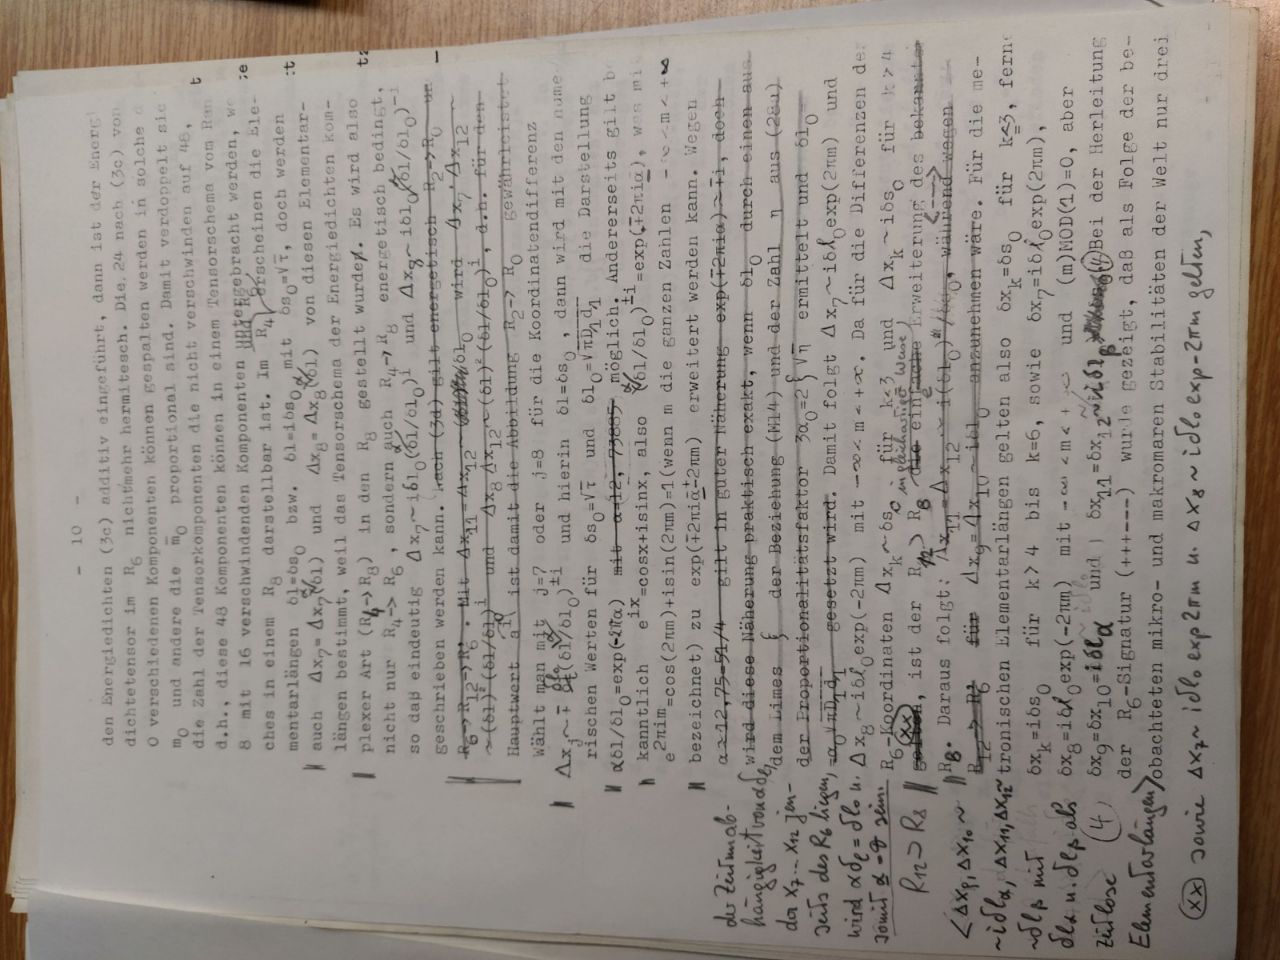 - 10 -
den Energiedichten (3c) additiv eingeführt, dann ist der Energ
dichtetensor im R6 nicht mehr hermitesch. Die 24 nach (3c) von
0 verschiedenen Komponenten können gespalten werden in solche
m0 und andere die m̅0 proportional sind. Damit verdoppelt sic
die Zahl der Tensorkomponenten die nicht verschwinden auf 48,
d.h., diese 48 Komponenten können in einem Tensorschema vom Ran
8 mit 16 verschwindenden Komponenten untergebracht werden, we
ches in einem R8 darstellbar ist. Im R4 und R6 erscheinen die Ele-
mentarlängen δl=δs0 bzw. δl=iδs0 mit δs0=√τ, doch werden
auch Δx7=Δx7(αδl) und Δx8=Δx8(αδl) von diesen Elementar-
längen bestimmt, weil das Tensorschema der Energiedichten kom-
plexer Art (R4→R8) in den R8 gestellt wurde. Es wird also
nicht nur R4→R6, sondern auch R4→R8 energetisch bedingt,
so daß eindeutig Δx7~iδl0(αδl/δl0)^i und Δx8~iδl0(αδl/δl0)^-i
geschrieben werden kann. nach (3d) gilt energetisch R2→R0 un
R6→R12→R6. Mit Δx11=Δx12 δl0 wird Δx7·Δx12~
~(δl)²(δl/δl0)^i und Δx8 Δx12~(δl)²(δl/δl0)^i, d.h. für den
Hauptwert ist damit die Abbildung R2→R0 gewährleistet
Wählt man mit j=7 oder j=8 für die Koordinatendifferenz
Δxj~∓ (δl/δl0)^±i und hierin δl=δs0, dann wird mit den nume
rischen Werten für δs0=√τ und δl0=√πD1d1 die Darstellung
αδl/δl0=exp(-2πα) mit α=12,73885 möglich. Andererseits gilt b
kanntlich e^ix=cosx+isinx, also (αδl/δl0)^±i=exp(∓2πiα), was mi
e^2πim=cos(2πm)+isin(2πm)=1(wenn m die ganzen Zahlen -∞<m<+∞
bezeichnet) zu exp(∓2πiα±2πm) erweitert werden kann. Wegen
α≈12,75=51/4 gilt in guter Näherung exp(∓2πiα)~∓i, doch
wird diese Näherung praktisch exakt, wenn δl0 durch einen aus
dem Limes der Beziehung (M14) und der Zahl η aus (28u)
der Proportionalitätsfaktor 3α0=2 √η ermittelt und δl0
=α0√πD1d1 gesetzt wird. Damit folgt Δx7~iδl0exp(2πm) und
Δx8~iδl0exp(-2πm) mit -∞<m<+∞. Da für die Differenzen der
R6-Koordinaten Δxk~δs0 für k≤3 und Δxk~iδs0 für k>4
gelten, (xx) ist der R8 in gleicher Weise die einfache Erweiterung des bekannten
R8. Daraus folgt: Δx11=Δx12~i(δl0)²/δs0, während wegen <---->
R12→R6 für Δx9=Δx10~iδl0 anzunehmen wäre. Für die me-
tronischen Elementarlängen gelten also δxk=δs0 für k≤3, fern
δxk=iδs0 für k>4 bis k=6, sowie δx7=iδl0exp(2πm),
δx8=iδl0exp(-2πm) mit -∞<m<+∞ und (m)MOD(1)=0, aber
δx9=δx10=iδlα und δx11=δx12~iδlβ (4) Bei der Herleitung
der R6-Signatur (+++---) wurde gezeigt, daß als Folge der be-
obachteten mikro- und makromaren Stabilitäten der Welt nur drei
(xx) sowie Δx7~iδl0 exp 2πm u. Δx8~iδl0 exp-2πm gelten,
der Zeitunab-
hängigkeit von δl
der x7...x12 jen-
seits des R6 liegen,
wird αδl=δl0 u.
somit α=q sein.
R12→R8
<Δx9,Δx10~
~iδlα, Δx11,Δx12~
~δlβ mit
δlα u. δlβ als
zeitlose (4)
Elementarlängen>